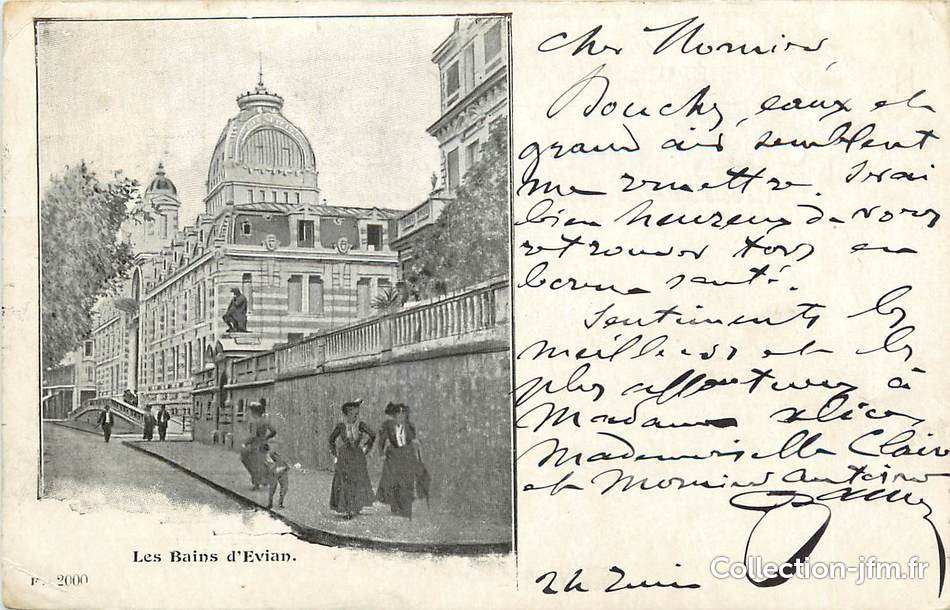 cher Monsieur,
Douches, eaux et
grand air semblent
me remettre. Serai
bien heureux de vous
retrouver tous en
bonne santé.
Sentiments les
meilleurs et les
plus affectueux à
Madame Alice,
Mademoiselle Claire
et Monsieur Antoine
24 Juin
Les Bains d'Evian.
2000
Collection-jfm.fr